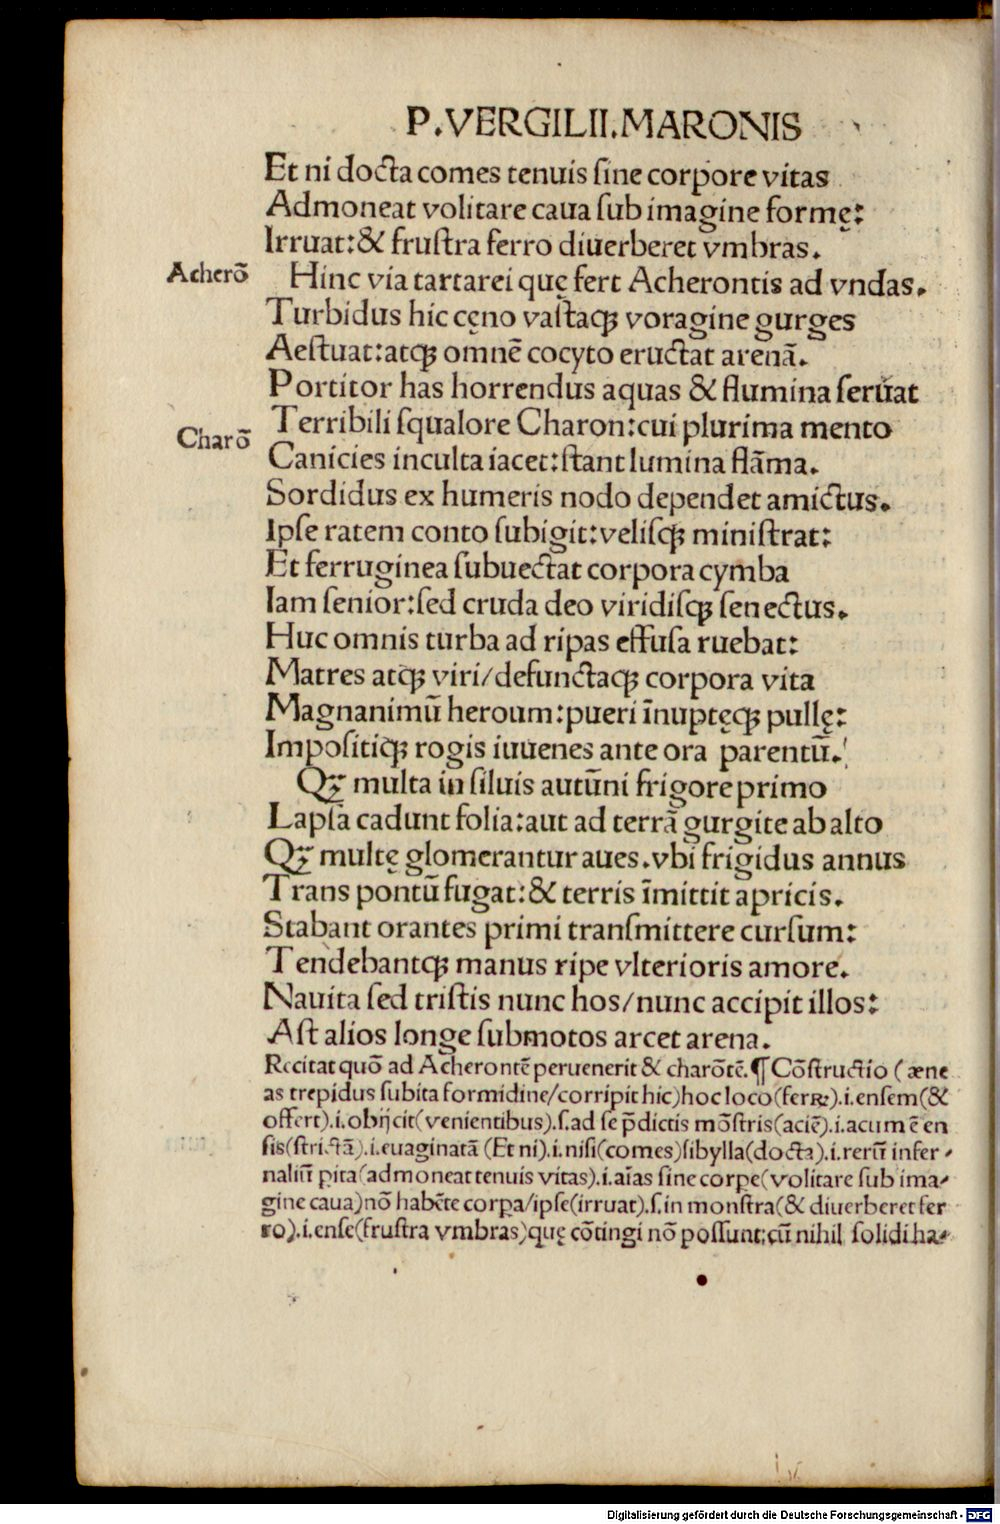 P.VERGILII.MARONIS
Et ni docta comes tenuis ſine corpore vitas
Admoneat volitare caua ſub imagine formę:
Irruat:& fruſtra ferro diuerberet vmbras.
Acherō
Hinc via tartarei quę fert Acherontis ad vndas.
Turbidus hic cęno vaſtaqꝫ voragine gurges
Aeſtuat:atqꝫ omnē cocyto eructat arenā.
Portitor has horrendus aquas & flumina ſeruat
Charō
Terribili ſqualore Charon:cui plurima mento
Canicies inculta iacet:ſtant lumina flāma.
Sordidus ex humeris nodo dependet amictus.
Ipſe ratem conto ſubigit:veliſqꝫ miniſtrat:
Et ferruginea ſubuectat corpora cymba
Iam ſenior:ſed cruda deo viridiſqꝫ ſenectus.
Huc omnis turba ad ripas effuſa ruebat:
Matres atqꝫ viri/defunctaqꝫ corpora vita
Magnanimū heroum:pueri īnuptęqꝫ pullę:
Impoſitiqꝫ rogis iuuenes ante ora parentū.
Qꝫ multa in ſiluis autūni frigore primo
Lapſa cadunt folia:aut ad terrā gurgite ab alto
Qꝫ multę glomerantur aues.vbi frigidus annus
Trans pontū fugat:& terris īmittit apricis.
Stabant orantes primi tranſmittere curſum:
Tendebantqꝫ manus ripe vlterioris amore.
Nauita ſed triſtis nunc hos/nunc accipit illos:
Aſt alios longe ſubmotos arcet arena.
Recitat quō ad Acherontē peruenerit & charōtē.¶ Cōſtructio (æne
as trepidus ſubita formidine/corripit hic)hoc loco(ferꝝ).i.enſem(&
offert).i.obijcit(venientibus).ſ.ad ſe p̄dictis mōſtris(aciē).i.acumē en
ſis(ſtrictā).i.euaginatā (Et ni).i.niſi(comes)ſibylla(docta).i.rerū infer-
naliū ꝑita(admoneat tenuis vitas).i.aīas ſine corꝑe(volitare ſub ima-
gine caua)nō habēte corꝑa/ipſe(irruat).ſ.in monſtra(& diuerberet fer
ro).i.enſe(fruſtra vmbras)quę cōtingi nō poſſunt:cū nihil ſolidi ha-
Digitalisierung gefördert durch die Deutsche Forschungsgemeinschaft - DFG